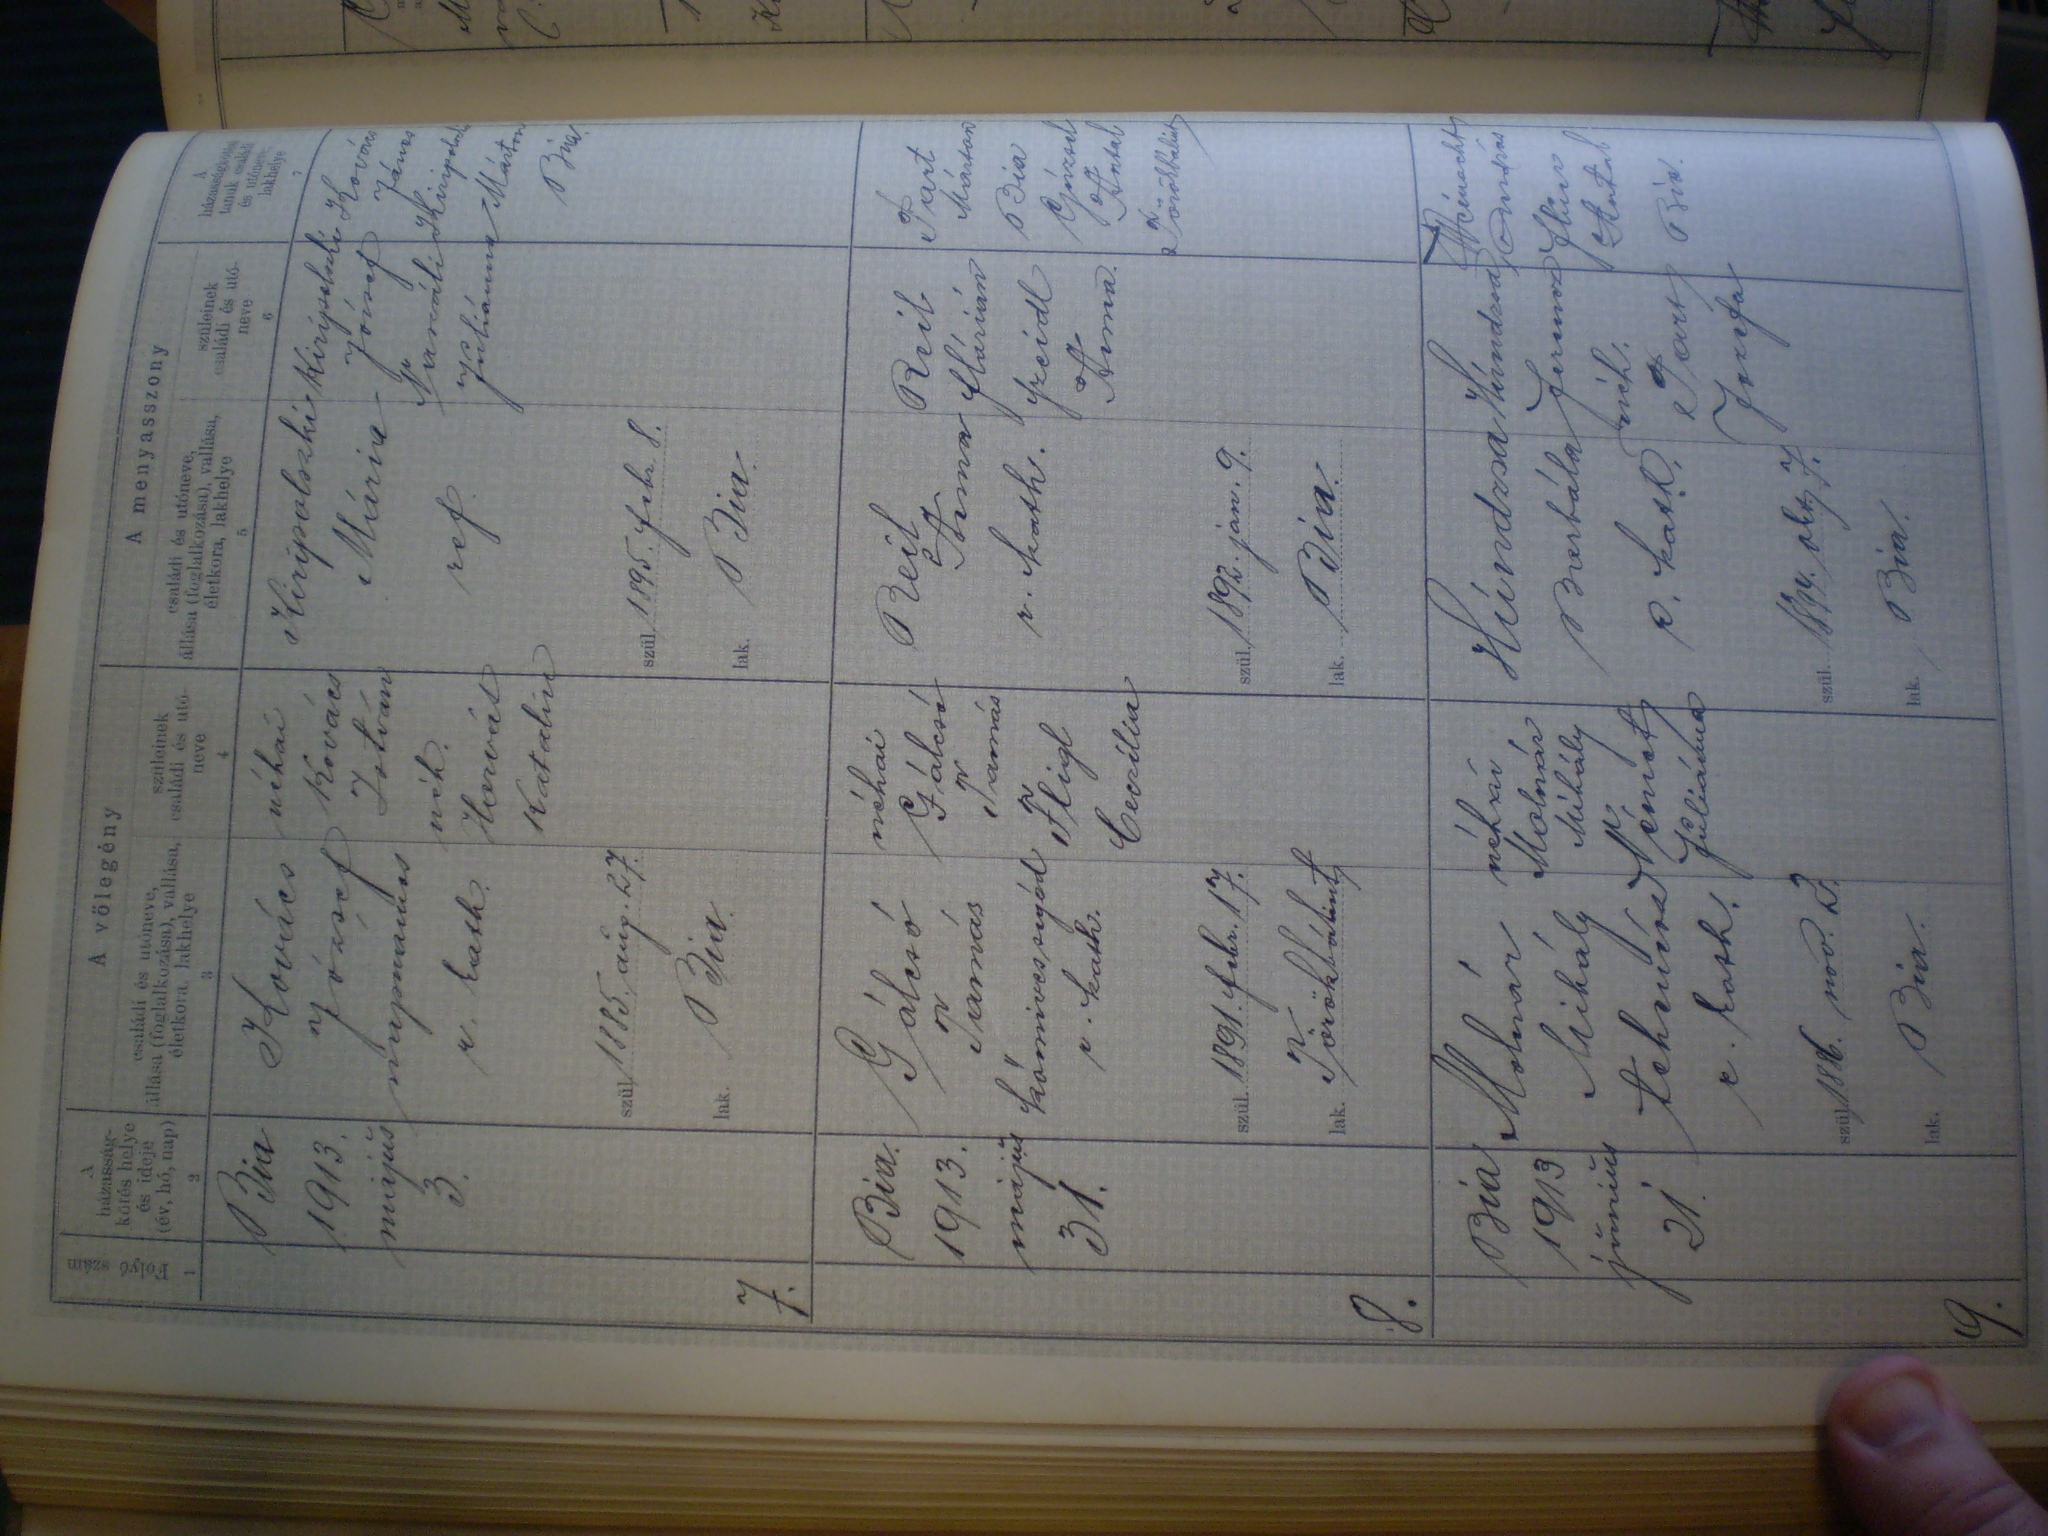 A völegény
A menyasszony
Folyó szám
A
házasság-
kötés helye
és ideje
(év, hó, nap)
családi és utóneve,
állása (foglalkozása), vallása,
életkora, lakhelye
szüleinek
családi és utó-
neve
családi és utóneve,
állása (foglalkozása), vallása,
életkora, lakhelye
szüleinek
családi és utó-
neve
A
házasságkötés
tanuk családi
és utóneve,
lakhelye
1
2
3
4
5
6
7
7.
Bia
1913.
május
3.
Kovács
József
napszámos
r. kath.
szül. 1885. aug. 27.
lak. Bia.
néhai
Kovács
István
néh.
Horvát
Katalin
Kiripolszki
Mária
ref.
szül. 1895. febr. 8.
lak. Bia.
Kiripolszki
József
Juliánna
Kovács
János
Kiripolszki
Márton
Bia.
8.
Bia.
1913.
május
31.
Gálcsó
Tamás
kőmivessegéd
r. kath.
szül. 1891. febr. 17.
lak. Törökbálint
néhai
Gálcsó
Tamás
Fligl
Czeczilia
Reil
Anna
r. kath.
szül. 1892. jan. 9.
lak. Bia.
Reil
Flórián
Szeidl
Anna.
Part
Márton
Bia
Antal
Törökbálint
9.
Bia
1913
június
21.
Molnár
Mihály
r. kath.
szül. 1886. nov. 2.
lak. Bia.
néhai
Molnár
Mihály
Német
Juliánna
Hundzsa
Borbála
r. kath.
szül. 1894. okt. 7.
lak. Bia.
Hundzsa
Ferencz
néh.
Part
Jozefa
András
Antal
Bia.